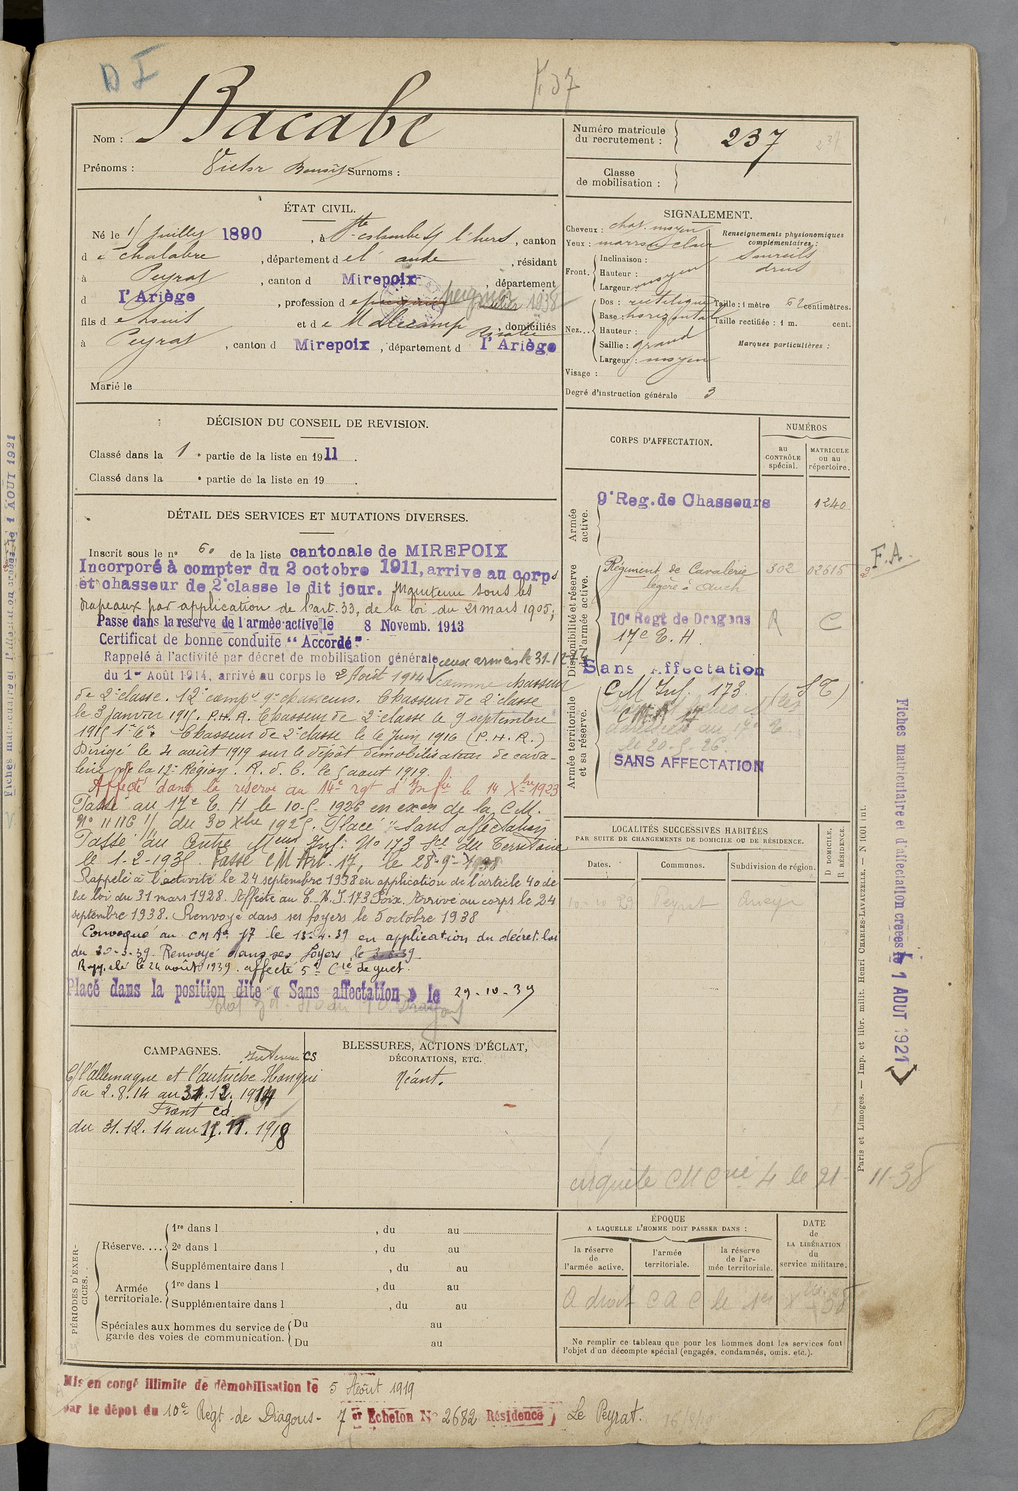 D I
K 37
Bacabe
Nom :
Prénoms : Victor Benoît Surnoms :
Numéro matricule
du recrutement : 237
Classe
de mobilisation :
ÉTAT CIVIL.
Né le juillet 1890, à Ste Colombe s/ l'hers, canton
de Chalabre, département de l'aude, résidant
à Peyrat, canton d Mirepoix, département
d l'Ariège, profession de peigneur 1938
fils de et de domiciliés
à Peyrat, canton d Mirepoix, département d l'Ariège
Marié le
SIGNALEMENT.
Cheveux : chat. moyen
Yeux : marron clair
Front. Inclinaison :
Hauteur :
Largeur : moyen
Nez... Dos : rectiligne
Base : horizontal
Hauteur :
Saillie : grand
Largeur : moyen
Renseignements physionomiques
complémentaires :
Sourcils
drus
Taille : 1 mètre 62 centimètres.
Taille rectifiée : 1 m. cent.
Marques particulières :
Visage :
Degré d'instruction générale 3
DÉCISION DU CONSEIL DE REVISION.
Classé dans la 1e partie de la liste en 1911.
Classé dans la e partie de la liste en 19
DÉTAIL DES SERVICES ET MUTATIONS DIVERSES.
Inscrit sous le no 60 de la liste cantonale de MIREPOIX
Incorporé à compter du 2 octobre 1911, arrive au corps
et chasseur de 2e classe le dit jour. Maintenu sous les
drapeaux par application de l'art. 33, de la loi du 21 mars 1905,
Passe dans la reserve de l'armée active le 8 Novemb. 1913
Certificat de bonne conduite "Accordé"
Rappelé à l'activité par décret de mobilisation générale
du 1er Août 1914, arrivé au corps le 3 Août 1914 comme chasseur
de 2e classe. 12e 9e chasseurs. Chasseur de 2e classe
le 3 janvier 1915. P.H.R. Chasseur de 2e classe le 9 septembre
1915 Chasseur de 2e classe le 6 Juin 1916 (P.H.R.)
Dirigé le 4 août 1919 sur le dépôt démobilisateur de cava-
lerie de la 12e Région. R. d. C. le 5 aout 1919.
Affecté dans la réserve au 14e rgt d'Infie le 14 Xbre 1923
Passé au 17e E. H le 10-5. 1926 en exon de la C.M.
No 11116 1/ du 30 Xbre 1925. Placé "Sans affectation"
Passé au Centre Mon Inf. No 173 Sce du Territoire
le 1-2-1935. Passé CM Art. 17, le 28-9-1938
Rappelé à l'activité le 24 septembre 1938 en application de l'article 40 de
la loi du 31 mars 1928. Affecté au C.M.I. 173 Foix. Arrivé au corps le 24
septembre 1938. Renvoyé dans ses foyers le 5 octobre 1938
Convoqué au CM Art 17 le 13-4-39 en application du décret-loi
du 20-3-39. Renvoyé dans ses foyers le
Rappelé le 24 août 1939. affecté 5e Cie de guet.
Placé dans la position dite « Sans affectation » le 29-10-39
CORPS D'AFFECTATION.
NUMÉROS
au
CONTRÔLE
spécial.
MATRICULE
ou au
répertoire.
Armée
active.
9e Reg. de Chasseurs 1240
Disponibilité et réserve
de l'armée active.
Régiment de Cavalerie 302 02615
légère à Auch
10e Regt de Dragons R C
17e E. H.
Sans Affectation
Armée territoriale
et sa réserve.
C M Inf. 173
CMA 17
le 20-5-26
SANS AFFECTATION
F.A.
LOCALITÉS SUCCESSIVES HABITÉES
PAR SUITE DE CHANGEMENTS DE DOMICILE OU DE RÉSIDENCE.
Dates. Communes. Subdivision de région.
D. DOMICILE.
R. RÉSIDENCE.
Peyrat
CAMPAGNES.
Intérieur CS
C/ l'allemagne et l'autriche Hongrie
du 2.8.14 au 31.12.1914
Front cd
du 31.12.14 au 11.11.1918
BLESSURES, ACTIONS D'ÉCLAT,
DÉCORATIONS, ETC.
Néant.
4 le 21-11-38
PÉRIODES D'EXER-
CICES.
Réserve.... 1re dans l , du au
2e dans l , du au
Supplémentaire dans l , du au
Armée
territoriale. 1re dans l , du au
Supplémentaire dans l , du au
Spéciales aux hommes du service de
garde des voies de communication. Du au
Du au
ÉPOQUE
A LAQUELLE L'HOMME DOIT PASSER DANS :
la réserve
de
l'armée active.
l'armée
territoriale.
la réserve
de l'ar-
mée territoriale.
DATE
de
LA LIBÉRATION
du
service militaire.
A droit C A C le 1er
Ne remplir ce tableau que pour les hommes dont les services font
l'objet d'un décompte spécial (engagés, condamnés, omis, etc.).
Mis en congé illimité de démobilisation le 5 Août 1919
par le dépot du 10e Régt de Dragons - 7 er Echelon No 2682 Résidence Le Peyrat.
Paris et Limoges. — Imp. et libr. milit. Henri CHARLES-LAVAUZELLE.
Fiches matriculaire et d'affectation créées le 1 AOUT 1921
Fiches matriculaire et d'affectation créées le 1 AOUT 1921